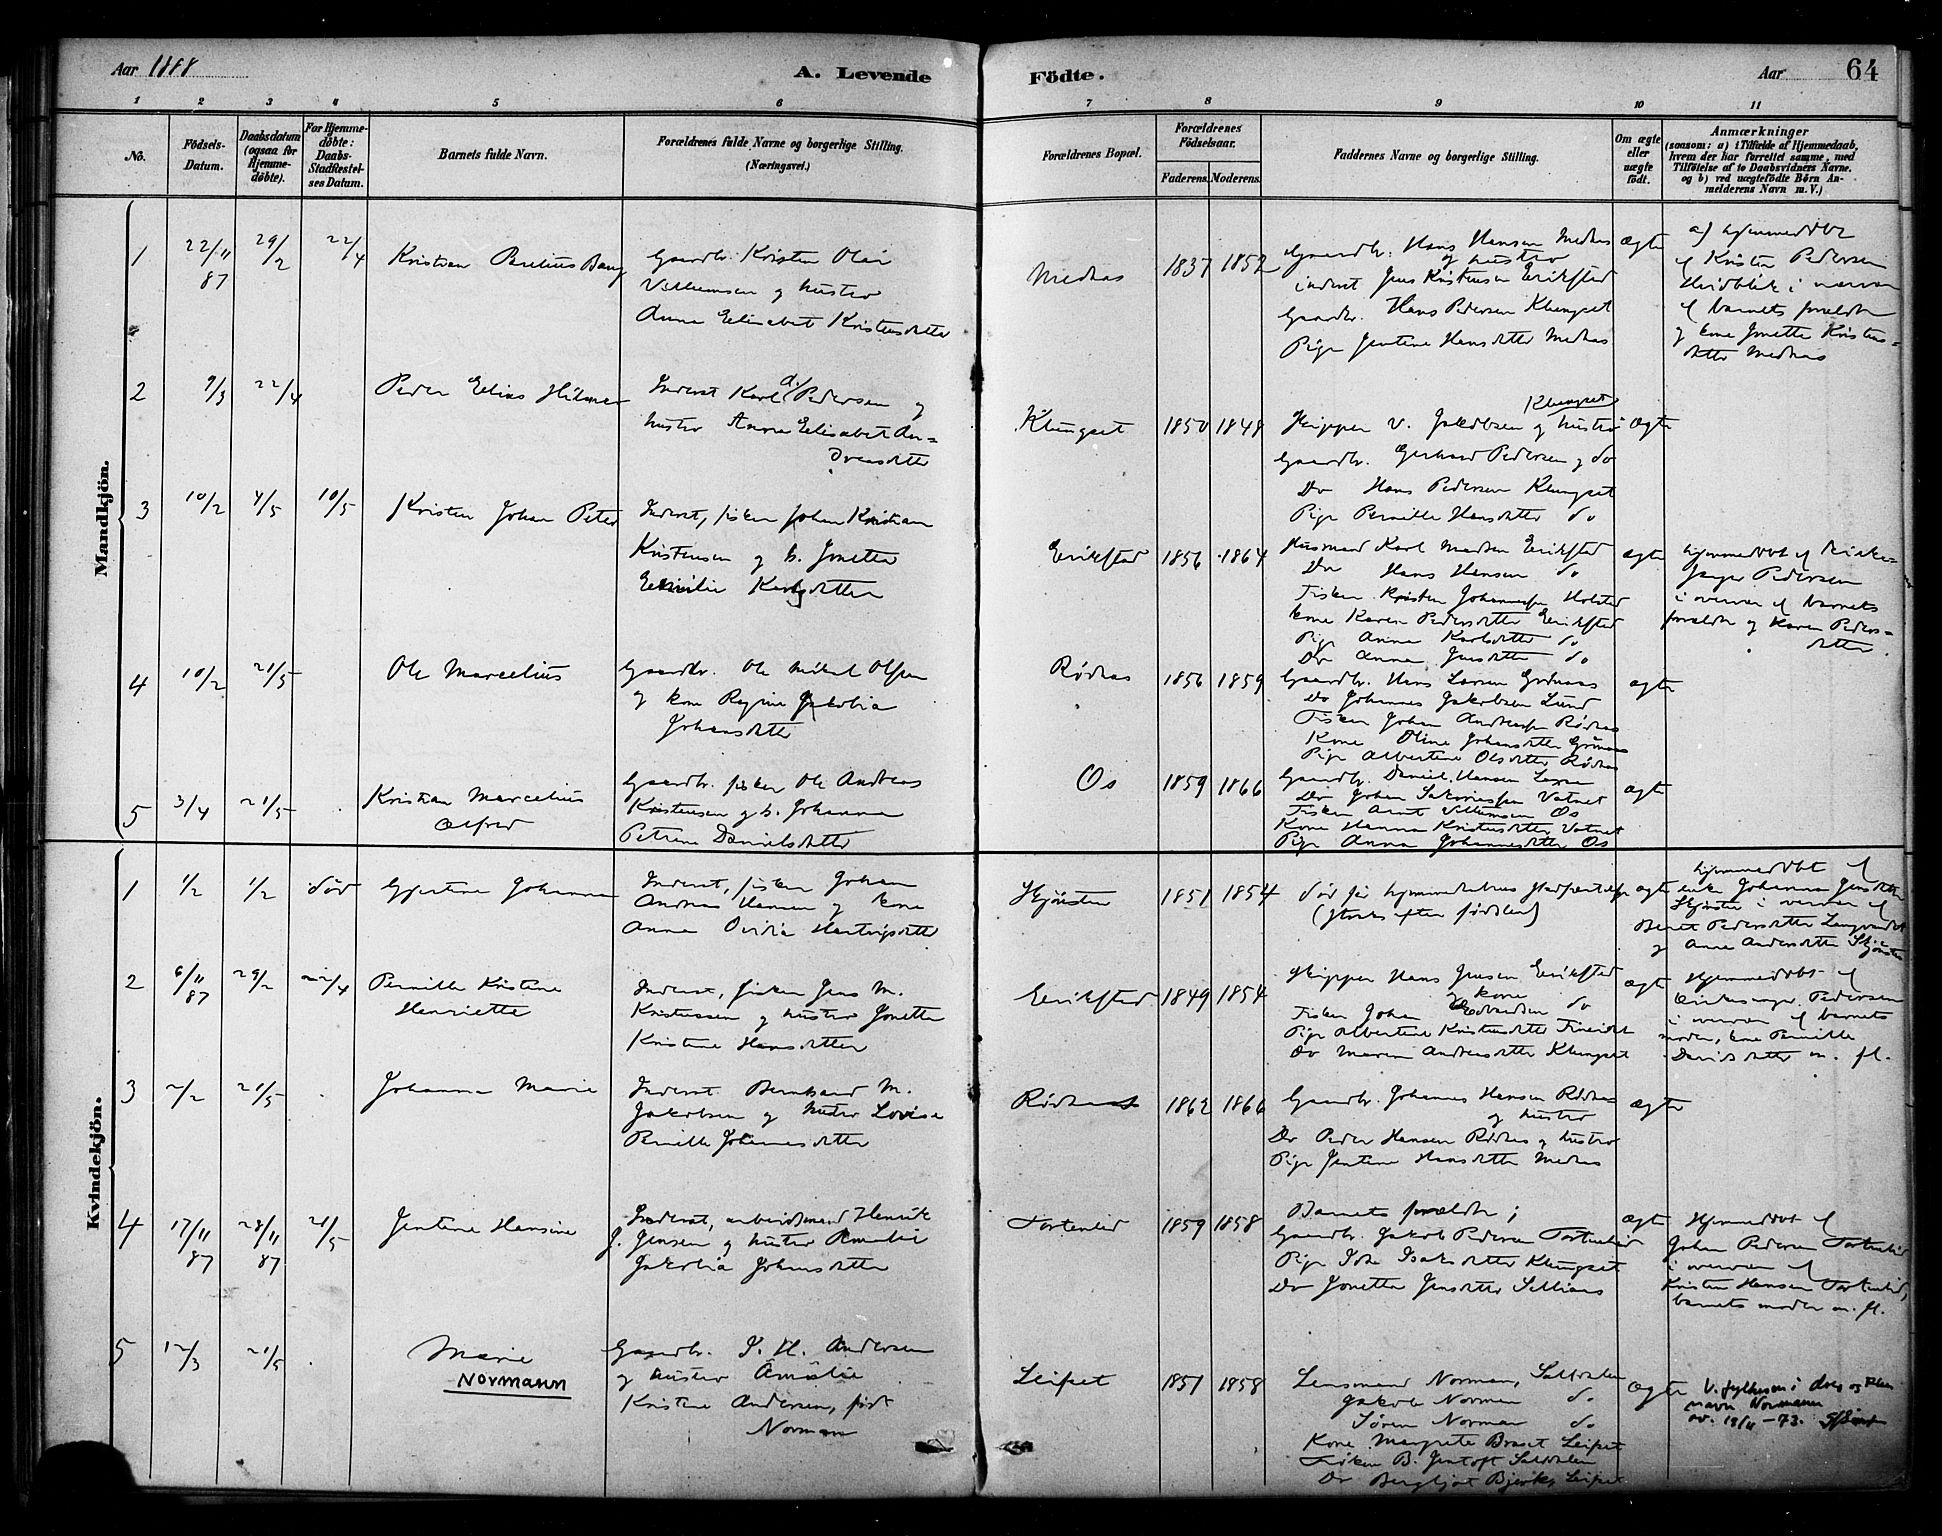 Aar 1888
A. Levende
Födte.
Aar
64
1 2 3 4 5 6 7 8 9 10 11
No.
Födsels-
Datum.
Daabsdatum
(ogsaa for
Hjemme-
döbte).
For Hjemme-
döbte:
Daabs-
Stadfæstel-
ses Datum.
Barnets fulde Navn.
Forældrenes fulde Navne og borgerlige Stilling.
(Næringsvei.)
Forældrenes Bopæl.
Forældrenes
Födselsaar.
Faderens.
Moderens.
Faddernes Navne og borgerlige Stilling.
Om ægte
eller
uægte
födt.
Anmærkninger
(saasom: a) i Tilfælde af Hjemmedaab,
hvem der har forrettet samme, med
Tilföielse af to Daabsvidners Navne.
og b) ved uægtefödte Börn An-
melderens Navn m. V.)
Mandkjön.
1
22/11
87
29/2
22/4
Kristian Parelius Bang
Gaardbr. Kristen Olai
Villumsen og hustro
Anna Elisabet Kristensdatter
Mednas
1837
1852
Gaardbr. Hans Hansen Mednas
og hustro
inderst Jens Kristensen Erikstad
Gaardbr. Hans Pedersen Klungset
Pige Jentine Hansdatter Mednas
ægte
a) hjemmedøbt
af Kristen Pedersen
i nærvær
af barnets forældre
og kone Jonette Kristens-
datter Mednas
2
9/3
22/4
Peder Elias Hilmer
Inderst Karl A. Pedersen og
hustro Anna Elisabet An-
dreasdatter
Klungset
1850
1848
Skipper V. Jakobsen og hustro Klungset
Gaardbr. Gerhard Pedersen og do
Do Hans Pedersen Klungset
Pige Pernille Hansdatter do
ægte
3
10/2
4/5
10/5
Kristen Johan Peter
Inderst, fisker Johan Kristian
Kristensen og h. Jonetta
Emilie Karlsdatter
Erikstad
1856
1864
Husmand Karl Madsen Erikstad
Do Hans Hansen do
Fisker Kristen Johannessen Holstad
kone Karen Pedersdatter Erikstad
Pige Anna Karlsdatter do
Do Anna Jensdatter do
ægte
hjemmedøbt af Kirke-
sanger Pedersen
i overvær af barnets
forældre og Karen Peders-
datter
4
10/2
21/5
Ole Marcelius
Gaardbr. Ole Mikal Olsen
og kone Regine Jakobia
Johansdatter
Rødnas
1856
1859
Gaardbr. Hans Larsen
Do Johannes Jakobsen Lund
Fisker Johan Andreassen Rødnas
Kone Oline Johansdatter
Pige Albertine Olsdatter Rødnas
ægte
5
3/4
21/5
Kristian Marcelius
Alfred
Gaardbr. fisker Ole Andreas
Kristensen og h. Johanna
Petrine Danielsdatter
Os
1859
1866
Gaardbr. Daniel Hansen
Do Johan Sakariassen Vatnet
Fisker Arnt Villumsen Os
Kone Hanna Kristensdatter Vatnet
Pige Anna Johannesdatter Os
ægte
Kvindekjön.
1
1/2
1/2
død
Gjertine Johanna
Inderst, fisker Johan
Andreas Hansen og kone
Anna Ovidia Hartvigsdatter
Skjönsten
1851
1854
død før hjemmedaabens stadfæstelse
(straks efter fødslen)
ægte
hjemmedøbt af
enke Johanna Jensdatter
i overvær af
Beret Pedersdatter
og Anne Andersdatter
2
6/11
87
29/2
22/4
Pernille Kristine
Henriette
Inderst, fisker Jens M.
Kristensen og hustro Jonetta
Kristine Hansdatter
Erikstad
1849
1854
Skipper Hans Jensen Erikstad
og kone do
Fisker Johan Edvardsen
Pige Albertine Kristensdatter Fineidet
Do Maren Andreasdatter Klungset
ægte
Hjemmedøbt af
Kirkesanger Pedersen
i overvær af barnets
moder, kone Pernille
Davidsdatter m. fl.
3
2/2
21/5
Johanna Marie
Inderst Bernhard M.
Jakobsen og hustro Lovise
Pernille Johannesdatter
Rødnas
1862
1866
Gaardbr. Johannes Hansen Rødnas
og hustro
Do Peder Hansen Rødnas og hustro
Pige Jentine Hansdatter Mednas
ægte
4
17/11
87
28/11
87
21/5
Jentine Hansine
Inderst, arbeidsmand Henrik
J. Jensen og hustro Amalie
Jakobia Johansdatter
Tortenlid
1859
1858
Barnets forældre;
Gaardbr. Jakob Pedersen Tortenlid
Pige Ida Isaksdatter Klungset
Do Jonetta Jensdatter
ægte
Hjemmedøbt af
Johan Pedersen Tortenlid
i overvær af
Kristen Hansen Tortenlid,
barnets moder m. fl.
5
12/3
21/5
Marie
NORMANN
Gaardbr. I. H. Andersen
og hustro Amalie
Kristine Andersen, født
Norman
Leifset
1851
1858
Lensmand Norman, Saltdalen
Jakob Norman do
Søren Norman do
Kone Margrete Braset Leifset
Frøken B. Jentoft Saltdalen
Do Bergljot Leifset
ægte
V. fylkesm. i
navn Normann
av. 13/11-73.